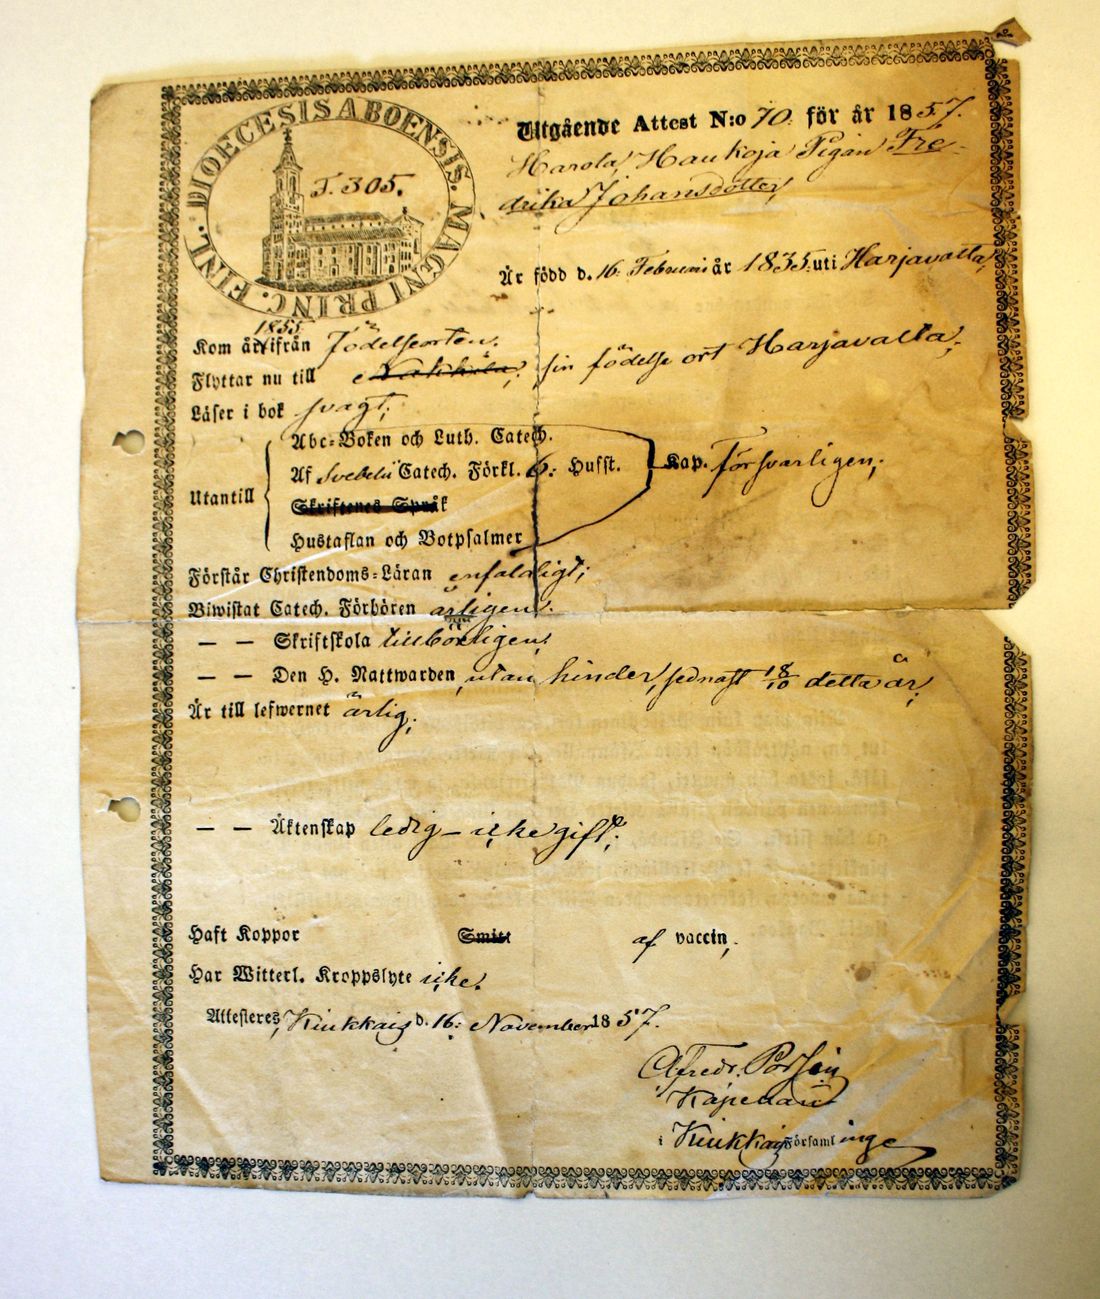 DIOECESIS ABOENSIS. MAGNI PRINC. FINL.
F. 305.
Utgående Attest N:o 70. för år 1857.
Harola, Haukoja Pigan Fre-
drika Johansdotter,
Är född d. 16. Februari år 1835. uti Harjavalta,
1855
Kom år ifrån Födelseorten.
Flyttar nu till Nakkila, sin födelse ort Harjavalta,
Läser i bok svagt;
Utantill
Abc-Boken och Luth. Catech.
Af Svebelii Catech. Förkl. 6: Husst. Kap. Försvarligen;
Skriftenes Språk
Hustaflan och Botpsalmer
Förstår Christendoms-Läran enfaldigt;
Biwistat Catech. Förhören årligen.
— — Skriftskola tillbörligen,
— — Den H. Nattwarden utan hinder, sednast 18/10 detta år,
Är till lefwernet ärlig,
— — Äktenskap ledig – icke gift;
Haft Koppor Smitt af vaccin,
Har Witterl. Kroppslyte icke.
Attesteras, Kiukkais d. 16: November 1857.
Alfredr.
Kapellan
i Kiukkais Församlinge